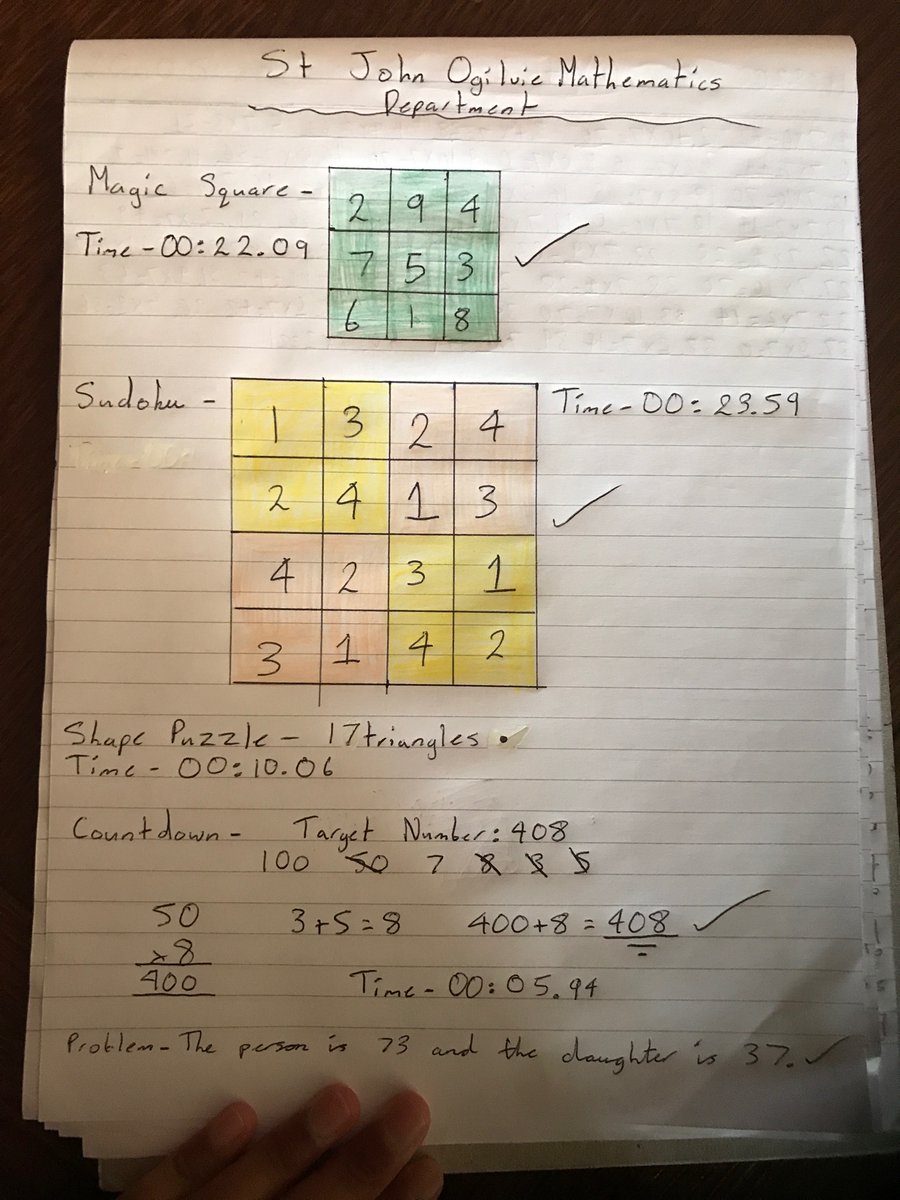 St John Ogilvie Mathematics
Department
Magic Square -
Time - 00:22.09
2 9 4
7 5 3
6 1 8
Sudoku -
Time - 00:23.59
1 3 2 4
2 4 1 3
4 2 3 1
3 1 4 2
Shape Puzzle - 17 triangles
Time - 00:10.06
Countdown - Target Number: 408
100 50 7 8 3 5
50 3+5=8 400+8=408
x8
400 Time - 00:05.94
Problem - The person is 73 and the daughter is 37.